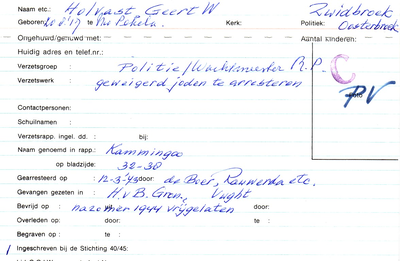 Naam etc.: Holvast Geert W Zuidbroek
Geboren: 20.8.'17 te Nw Pekela. Kerk: Politiek: Oosterbroek
Ongehuwd/gehuwd met: Aantal kinderen:
Huidig adres en telef.nr.:
Verzetsgroep : Politie/Wachtmeester R.P.
Verzetswerk : geweigerd joden te arresteren
C
PV
Contactpersonen:
Schuilnaam :
Verzetsrapp. ingel. dd. : bij:
Naam genoemd in rapp.: Kammingaa
op bladzijde: 32-38
Gearresteerd op : 12-3-43 door: de Boer, Rauwerda etc.
Gevangen gezeten in : H.v.B. Gron., Vught
Bevrijd op : nazomer 1944 vrijgelaten door:
Overleden op: door: te :
Begraven op : te :
1 Ingeschreven bij de Stichting 40/45: